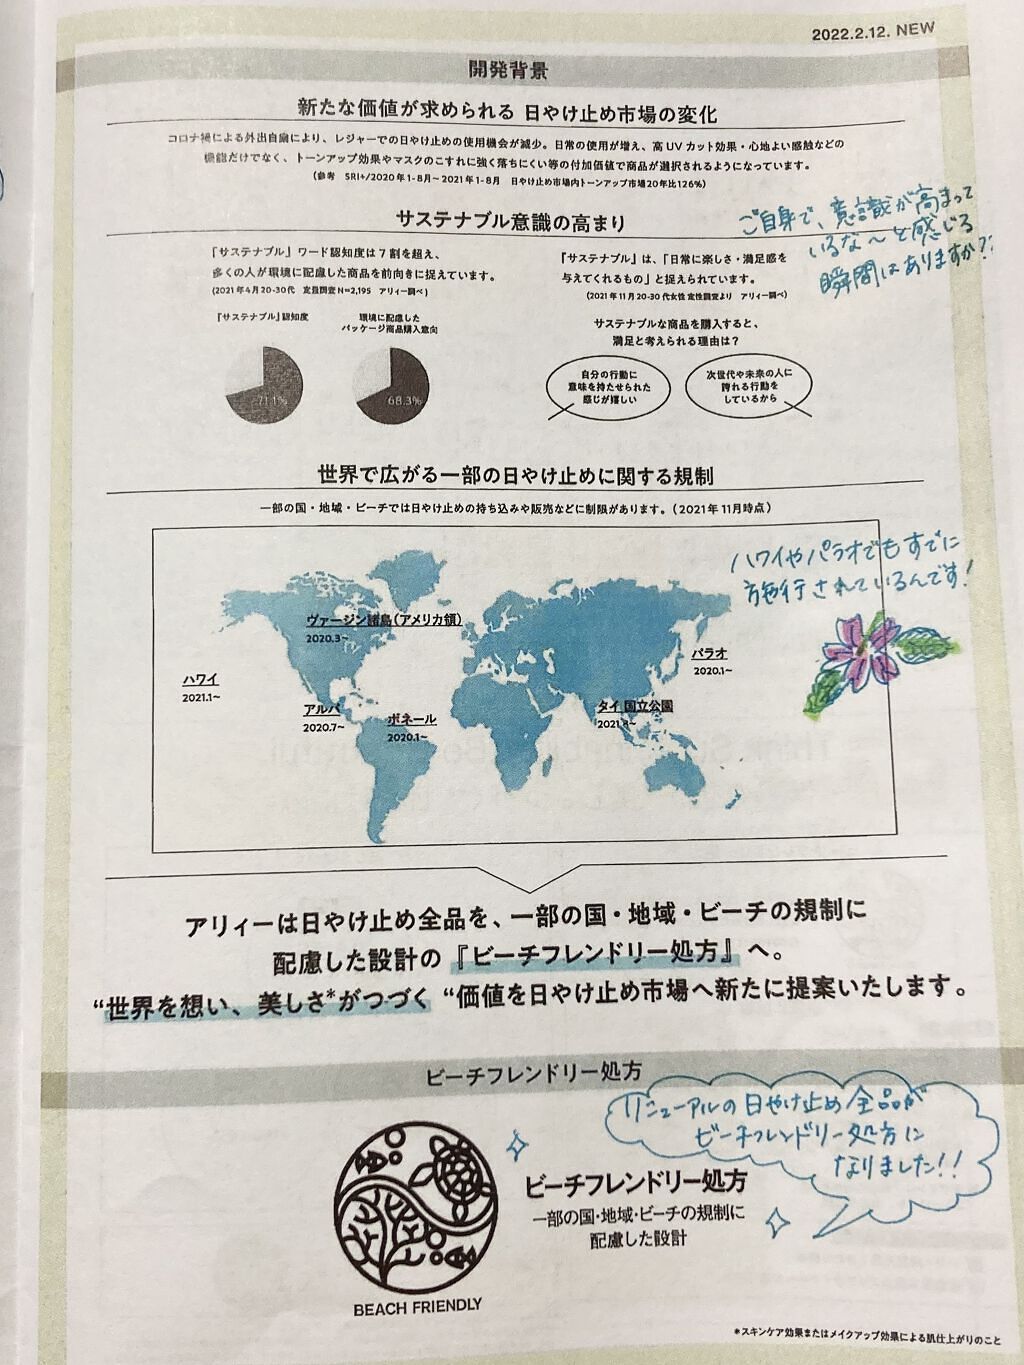 2022.2.12. NEW
開発背景
新たな価値が求められる 日やけ止め市場の変化
コロナ禍による外出自粛により、レジャーでの日やけ止めの使用機会が減少。日常の使用が増え、高UVカット効果・心地よい感触などの
機能だけでなく、トーンアップ効果やマスクのこすれに強く落ちにくい等の付加価値で商品が選択されるようになっています。
(参考 SRI+/2020年1-8月～2021年1-8月 日やけ止め市場内トーンアップ市場20年比126%)
サステナブル意識の高まり
ご自身で、意識が高まって
いるな〜と感じる
瞬間はありますか?!
『サステナブル』ワード認知度は7割を超え、
多くの人が環境に配慮した商品を前向きに捉えています。
(2021年4月20-30代 定量調査N=2,195 アリィー調べ)
『サステナブル』認知度
環境に配慮した
パッケージ商品購入意向
71.1%
68.3%
『サステナブル』は、「日常に楽しさ・満足感を
与えてくれるもの」と捉えられています。
(2021年11月20-30代女性 定性調査より アリィー調べ)
サステナブルな商品を購入すると、
満足と考えられる理由は?
自分の行動に
意味を持たせられた
感じが嬉しい
次世代や未来の人に
誇れる行動を
しているから
世界で広がる一部の日やけ止めに関する規制
一部の国・地域・ビーチでは日やけ止めの持ち込みや販売などに制限があります。(2021年11月時点)
ハワイやパラオでもすでに
施行されているんです!
ヴァージン諸島(アメリカ領)
2020.3~
ハワイ
2021.1~
アルバ
2020.7~
ボネール
2020.1~
パラオ
2020.1~
タイ国立公園
2021.8~
アリィーは日やけ止め全品を、一部の国・地域・ビーチの規制に
配慮した設計の『ビーチフレンドリー処方』へ。
“世界を想い、美しさ*がつづく “価値を日やけ止め市場へ新たに提案いたします。
ビーチフレンドリー処方
リニューアルの日やけ止め全品が
ビーチフレンドリー処方に
なりました!!
ビーチフレンドリー処方
一部の国・地域・ビーチの規制に
配慮した設計
BEACH FRIENDLY
*スキンケア効果またはメイクアップ効果による肌仕上がりのこと